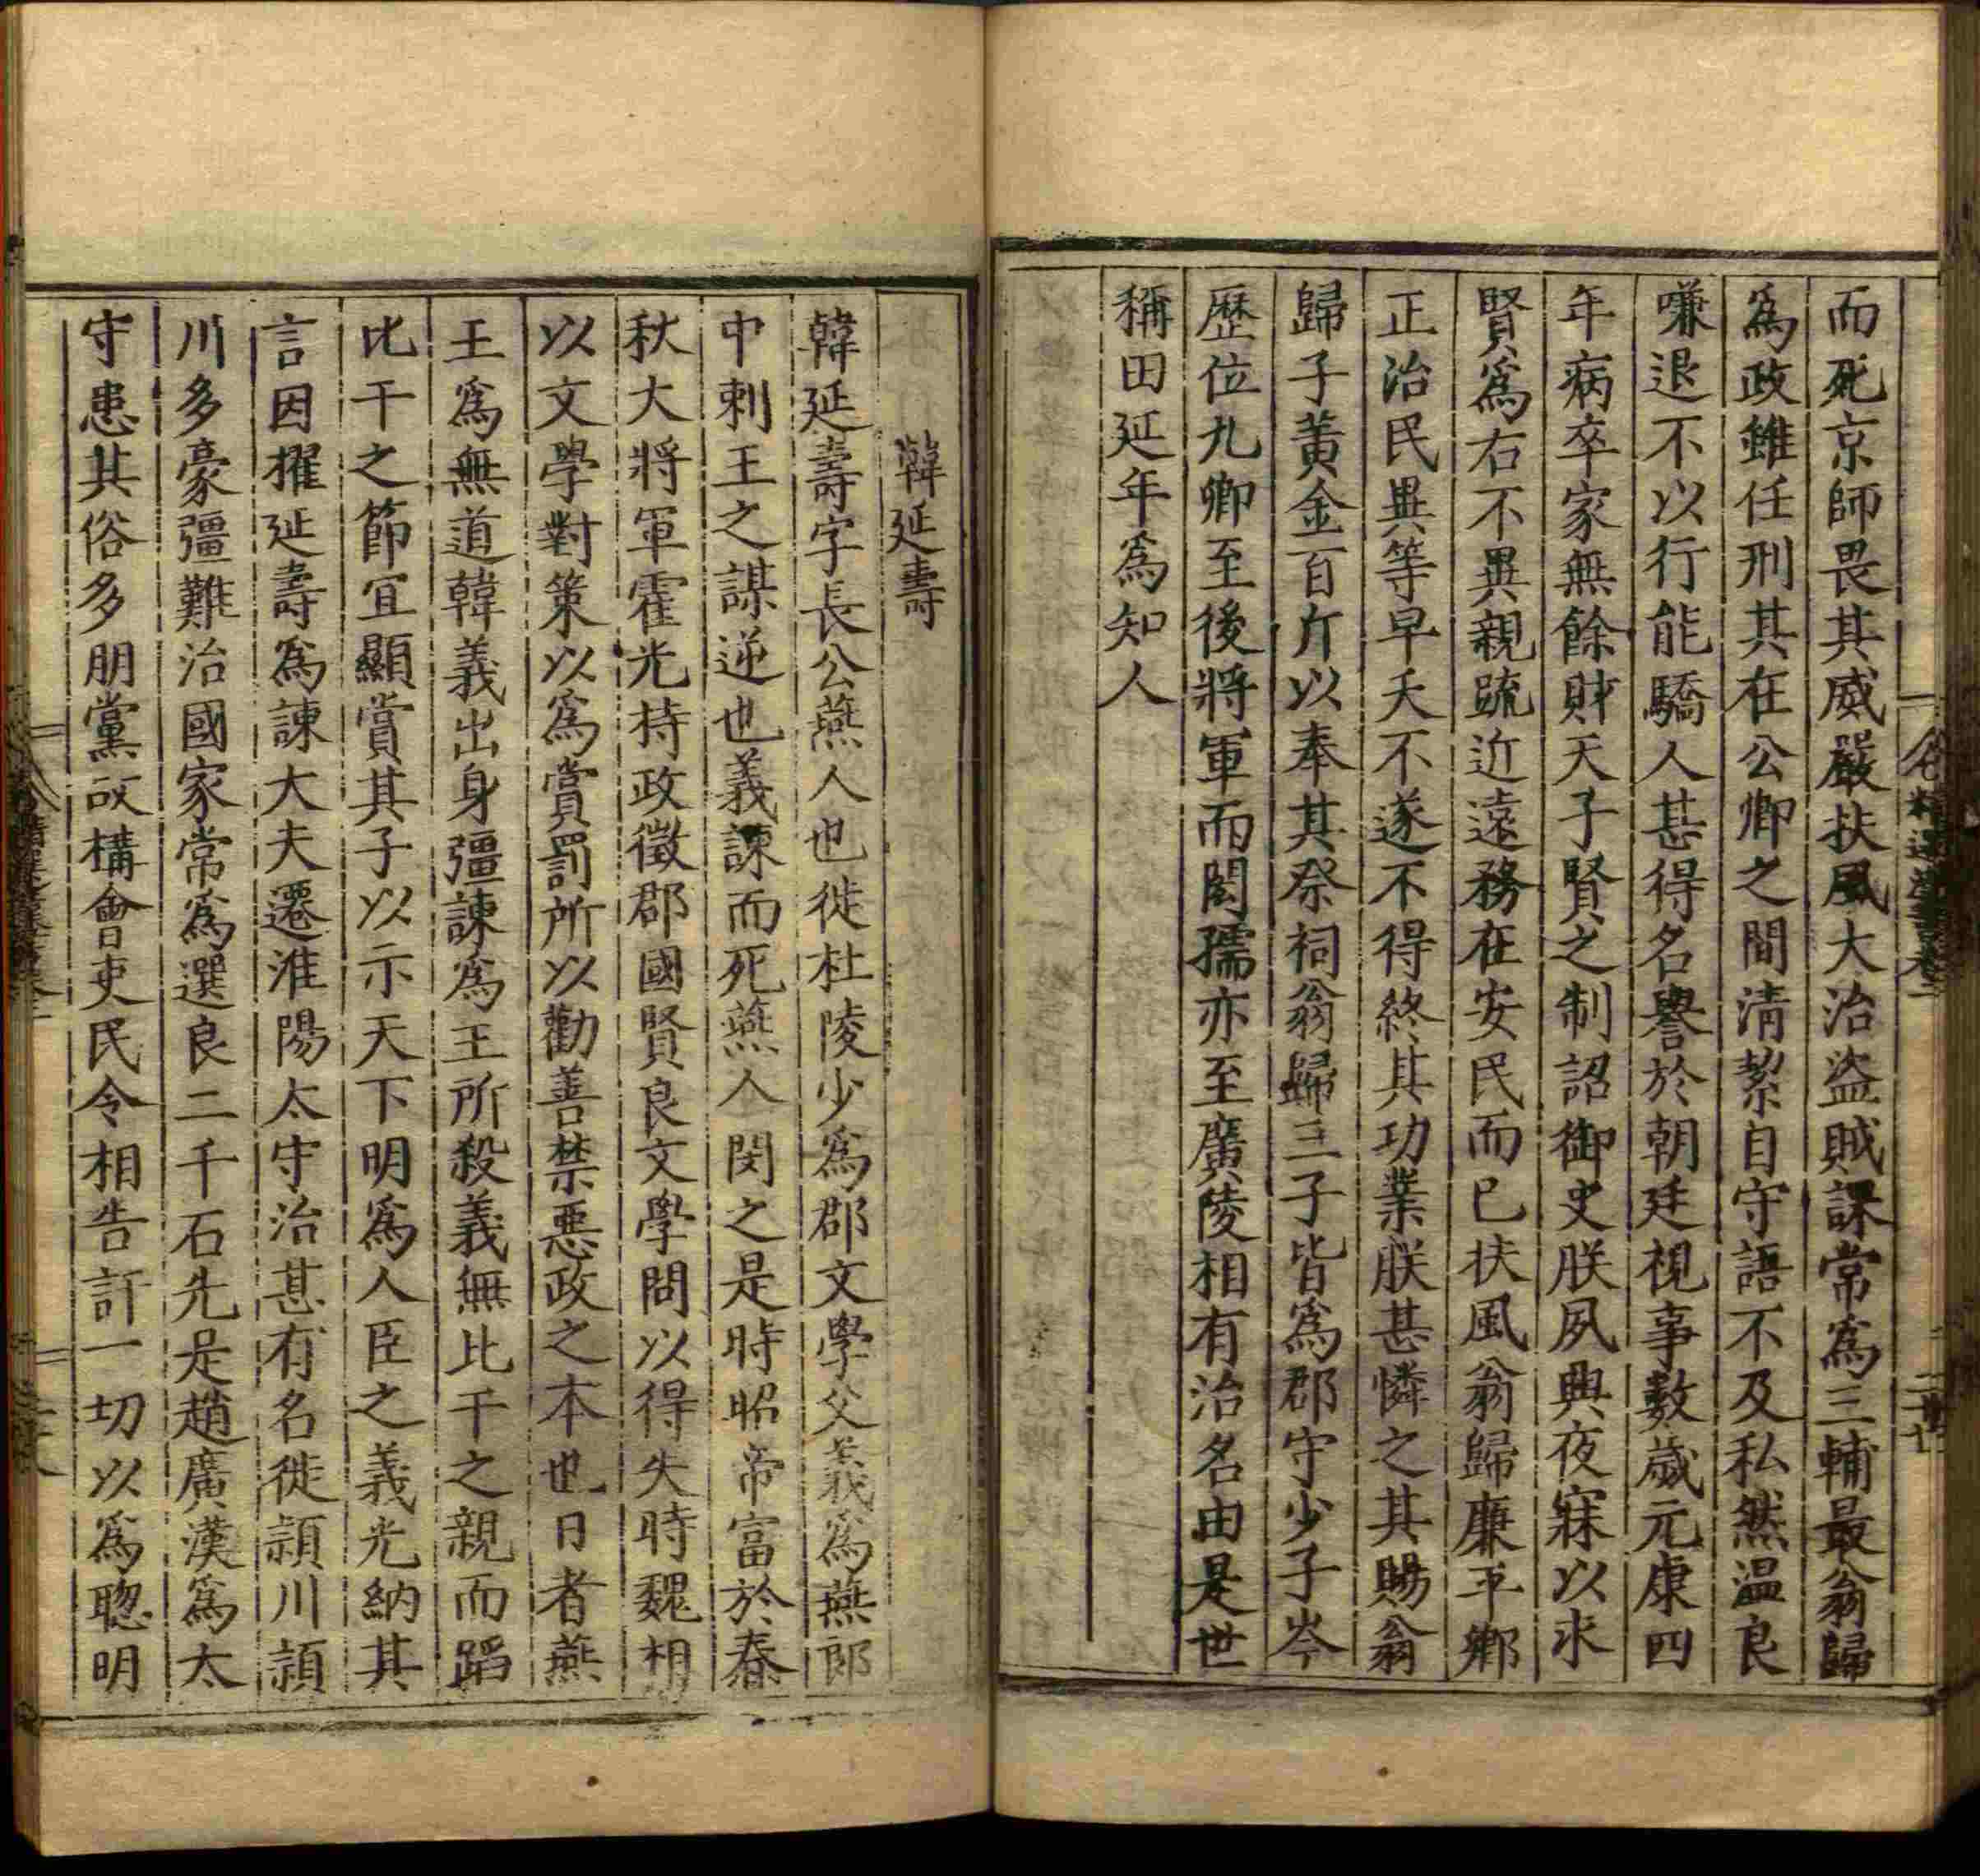 而死京師畏其威嚴扶風大治盜賊課常為三輔最翁歸
為政雖任刑其在公卿之間清絜自守語不及私然温良
嗛退不以行能驕人甚得名譽於朝廷視事數歲元康四
年病卒家無餘財天子賢之制詔御史朕夙興夜寐以求
賢為右不異親疏近遠務在安民而已扶風翁歸廉平鄉
正治民異等早夭不遂不得終其功業朕甚憐之其賜翁
歸子黃金百斤以奉其祭祠翁歸三子皆為郡守少子岑
歷位九卿至後將軍而閎孺亦至廣陵相有治名由是世
稱田延年為知人
韓延壽
韓延壽字長公燕人也徙杜陵少為郡文學父義為燕郎
中刺王之謀逆也義諫而死燕人閔之是時昭帝富於春
秋大將軍霍光持政徵郡國賢良文學問以得失時魏相
以文學對策以為賞罰所以勸善禁惡政之本也日者燕
王為無道韓義出身彊諫為王所殺義無比干之親而蹈
比干之節宜顯賞其子以示天下明為人臣之義光納其
言因擢延壽為諫大夫遷淮陽太守治甚有名徙潁川潁
川多豪彊難治國家常為選良二千石先是趙廣漢為太
守患其俗多朋黨故構會吏民令相告訐一切以為聰明